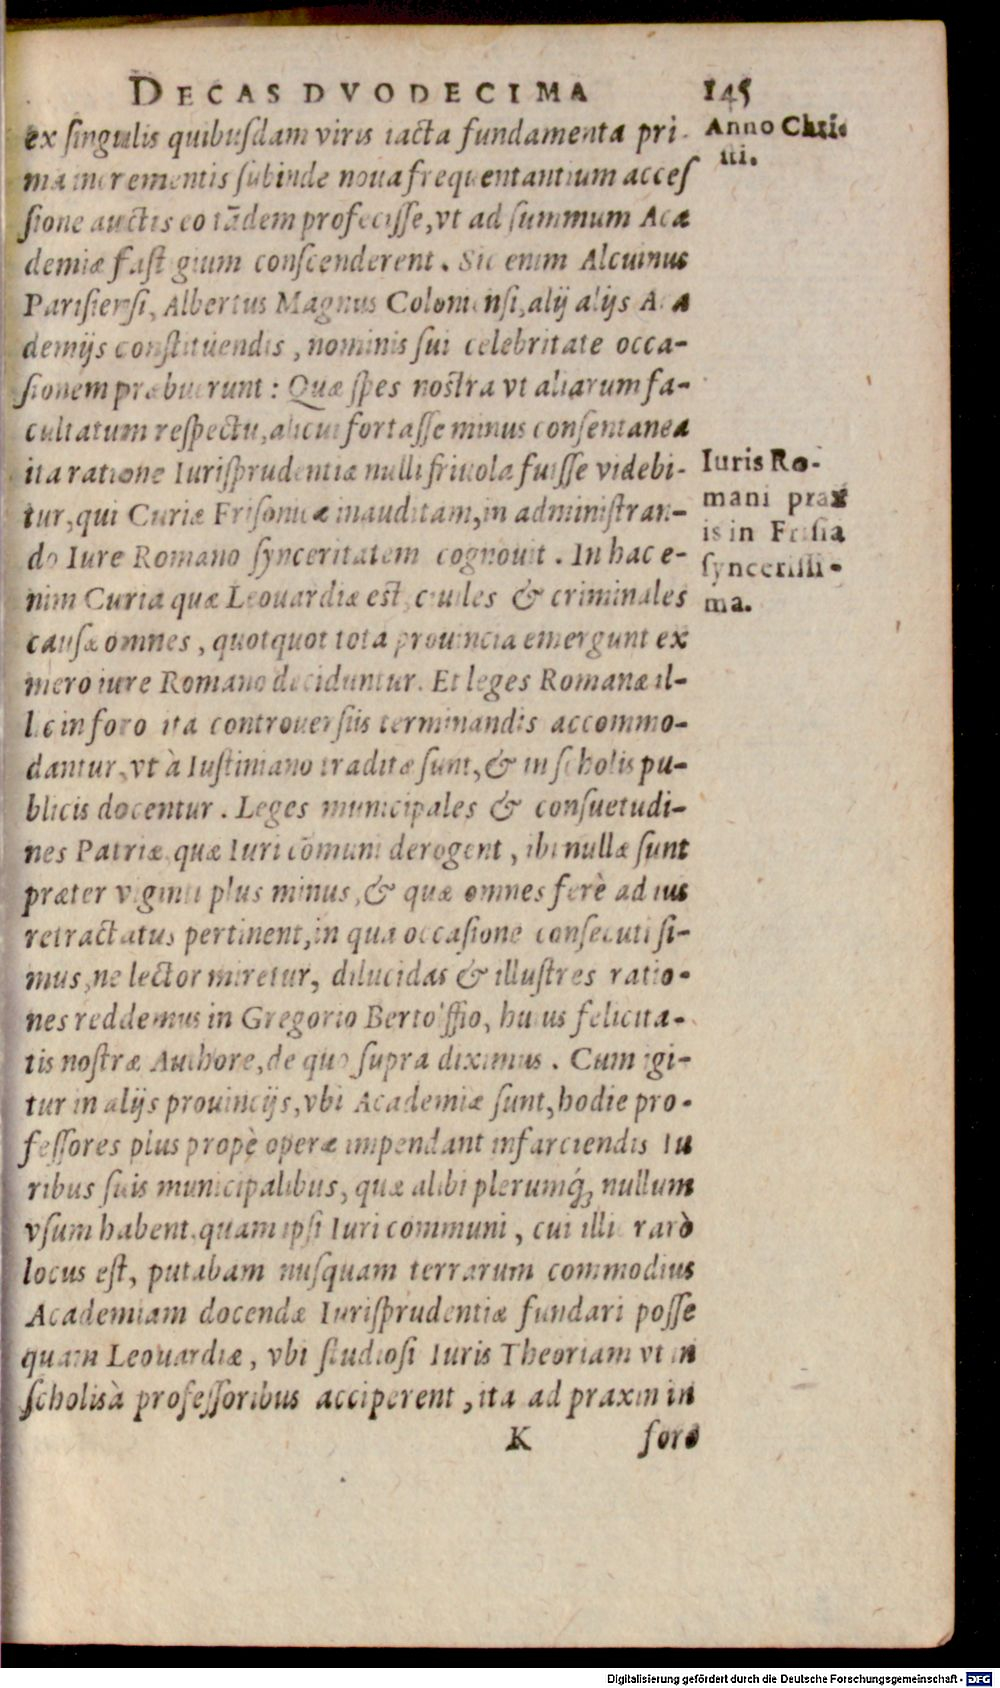 DECAS DVODECIMA 145
Anno Chri-
sti.
ex singulis quibusdam viris iacta fundamenta pri-
ma incrementis subinde noua frequentantium acces
sione auctis eo tādem profecisse, vt ad summum Aca
demiæ fastigium conscenderent. Sic enim Alcuinus
Parisiensi, Albertus Magnus Coloniensi, alij alijs Aca
demijs constituendis, nominis sui celebritate occa-
sionem præbuerunt: Quæ spes nostra vt aliarum fa-
cultatum respectu, alicui fortasse minus consentanea
ita ratione Iurisprudentiæ nulli friuola fuisse videbi-
tur, qui Curiæ Frisonicæ inauditam, in administran-
do Iure Romano synceritatem cognouit. In hac e-
nim Curia quæ Leouardiæ est, ciuiles & criminales
causæ omnes, quotquot tota prouincia emergunt ex
mero iure Romano deciduntur. Et leges Romanæ il-
lic in foro ita controuersiis terminandis accommo-
dantur, vt à Iustiniano traditæ sunt, & in scholis pu-
blicis docentur. Leges municipales & consuetudi-
nes Patriæ, quæ Iuri cōmuni derogent, ibi nullæ sunt
præter viginti plus minus, & quæ omnes ferè ad ius
retractatus pertinent, in qua occasione consecuti si-
mus, ne lector miretur, dilucidas & illustres ratio-
nes reddemus in Gregorio Bertolffio, huius felicita-
tis nostræ Authore, de quo supra diximus. Cum igi-
tur in alijs prouincijs, vbi Academiæ sunt, hodie pro-
fessores plus propè operæ impendant infarciendis Iu
ribus suis municipalibus, quæ alibi plerumq́; nullum
vsum habent, quam ipsi Iuri communi, cui illic rarò
locus est, putabam nusquam terrarum commodius
Academiam docendæ Iurisprudentiæ fundari posse
quam Leouardiæ, vbi studiosi Iuris Theoriam vt in
scholis à professoribus acciperent, ita ad praxin in
K foro
Iuris Ro-
mani prax
is in Frisia
syncerissi-
ma.
Digitalisierung gefördert durch die Deutsche Forschungsgemeinschaft - DFG